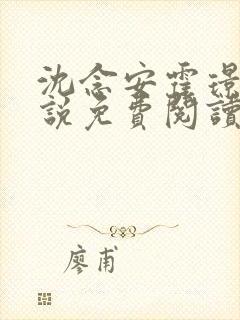 沈念安霆璟
說免費閱讀
廖甫